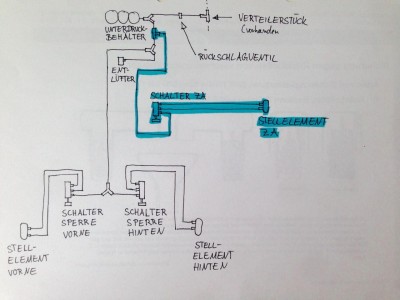 UNTERDRUCK-
BEHÄLTER
VERTEILERSTÜCK
(vorhanden)
RÜCKSCHLAGVENTIL
ENT-
LÜFTER
SCHALTER ZA
STELLELEMENT
ZA
SCHALTER
SPERRE
VORNE
SCHALTER
SPERRE
HINTEN
STELL-
ELEMENT
VORNE
STELL-
ELEMENT
HINTEN